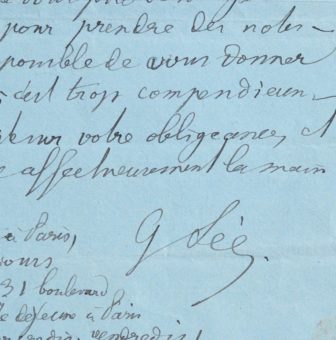 pour prendre des notes —
possible de vous donner
c'est trop compendieux —
votre obligeance, et
affectueusement la main
à Paris,
G Sée
jours
31 boulevard
déjeune à Paris
vendredis !